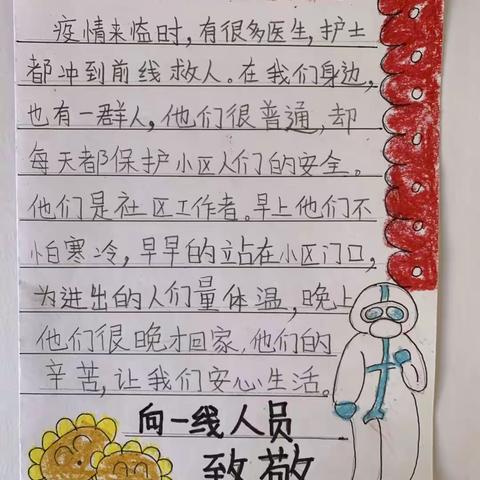 疫情来临时,有很多医生,护士
都冲到前线救人。在我们身边,
也有一群人,他们很普通,却
每天都保护小区人们的安全。
他们是社区工作者。早上他们不
怕寒冷,早早的站在小区门口,
为进出的人们量体温,晚上
他们很晚才回家,他们的
辛苦,让我们安心生活。
向一线人员
致敬